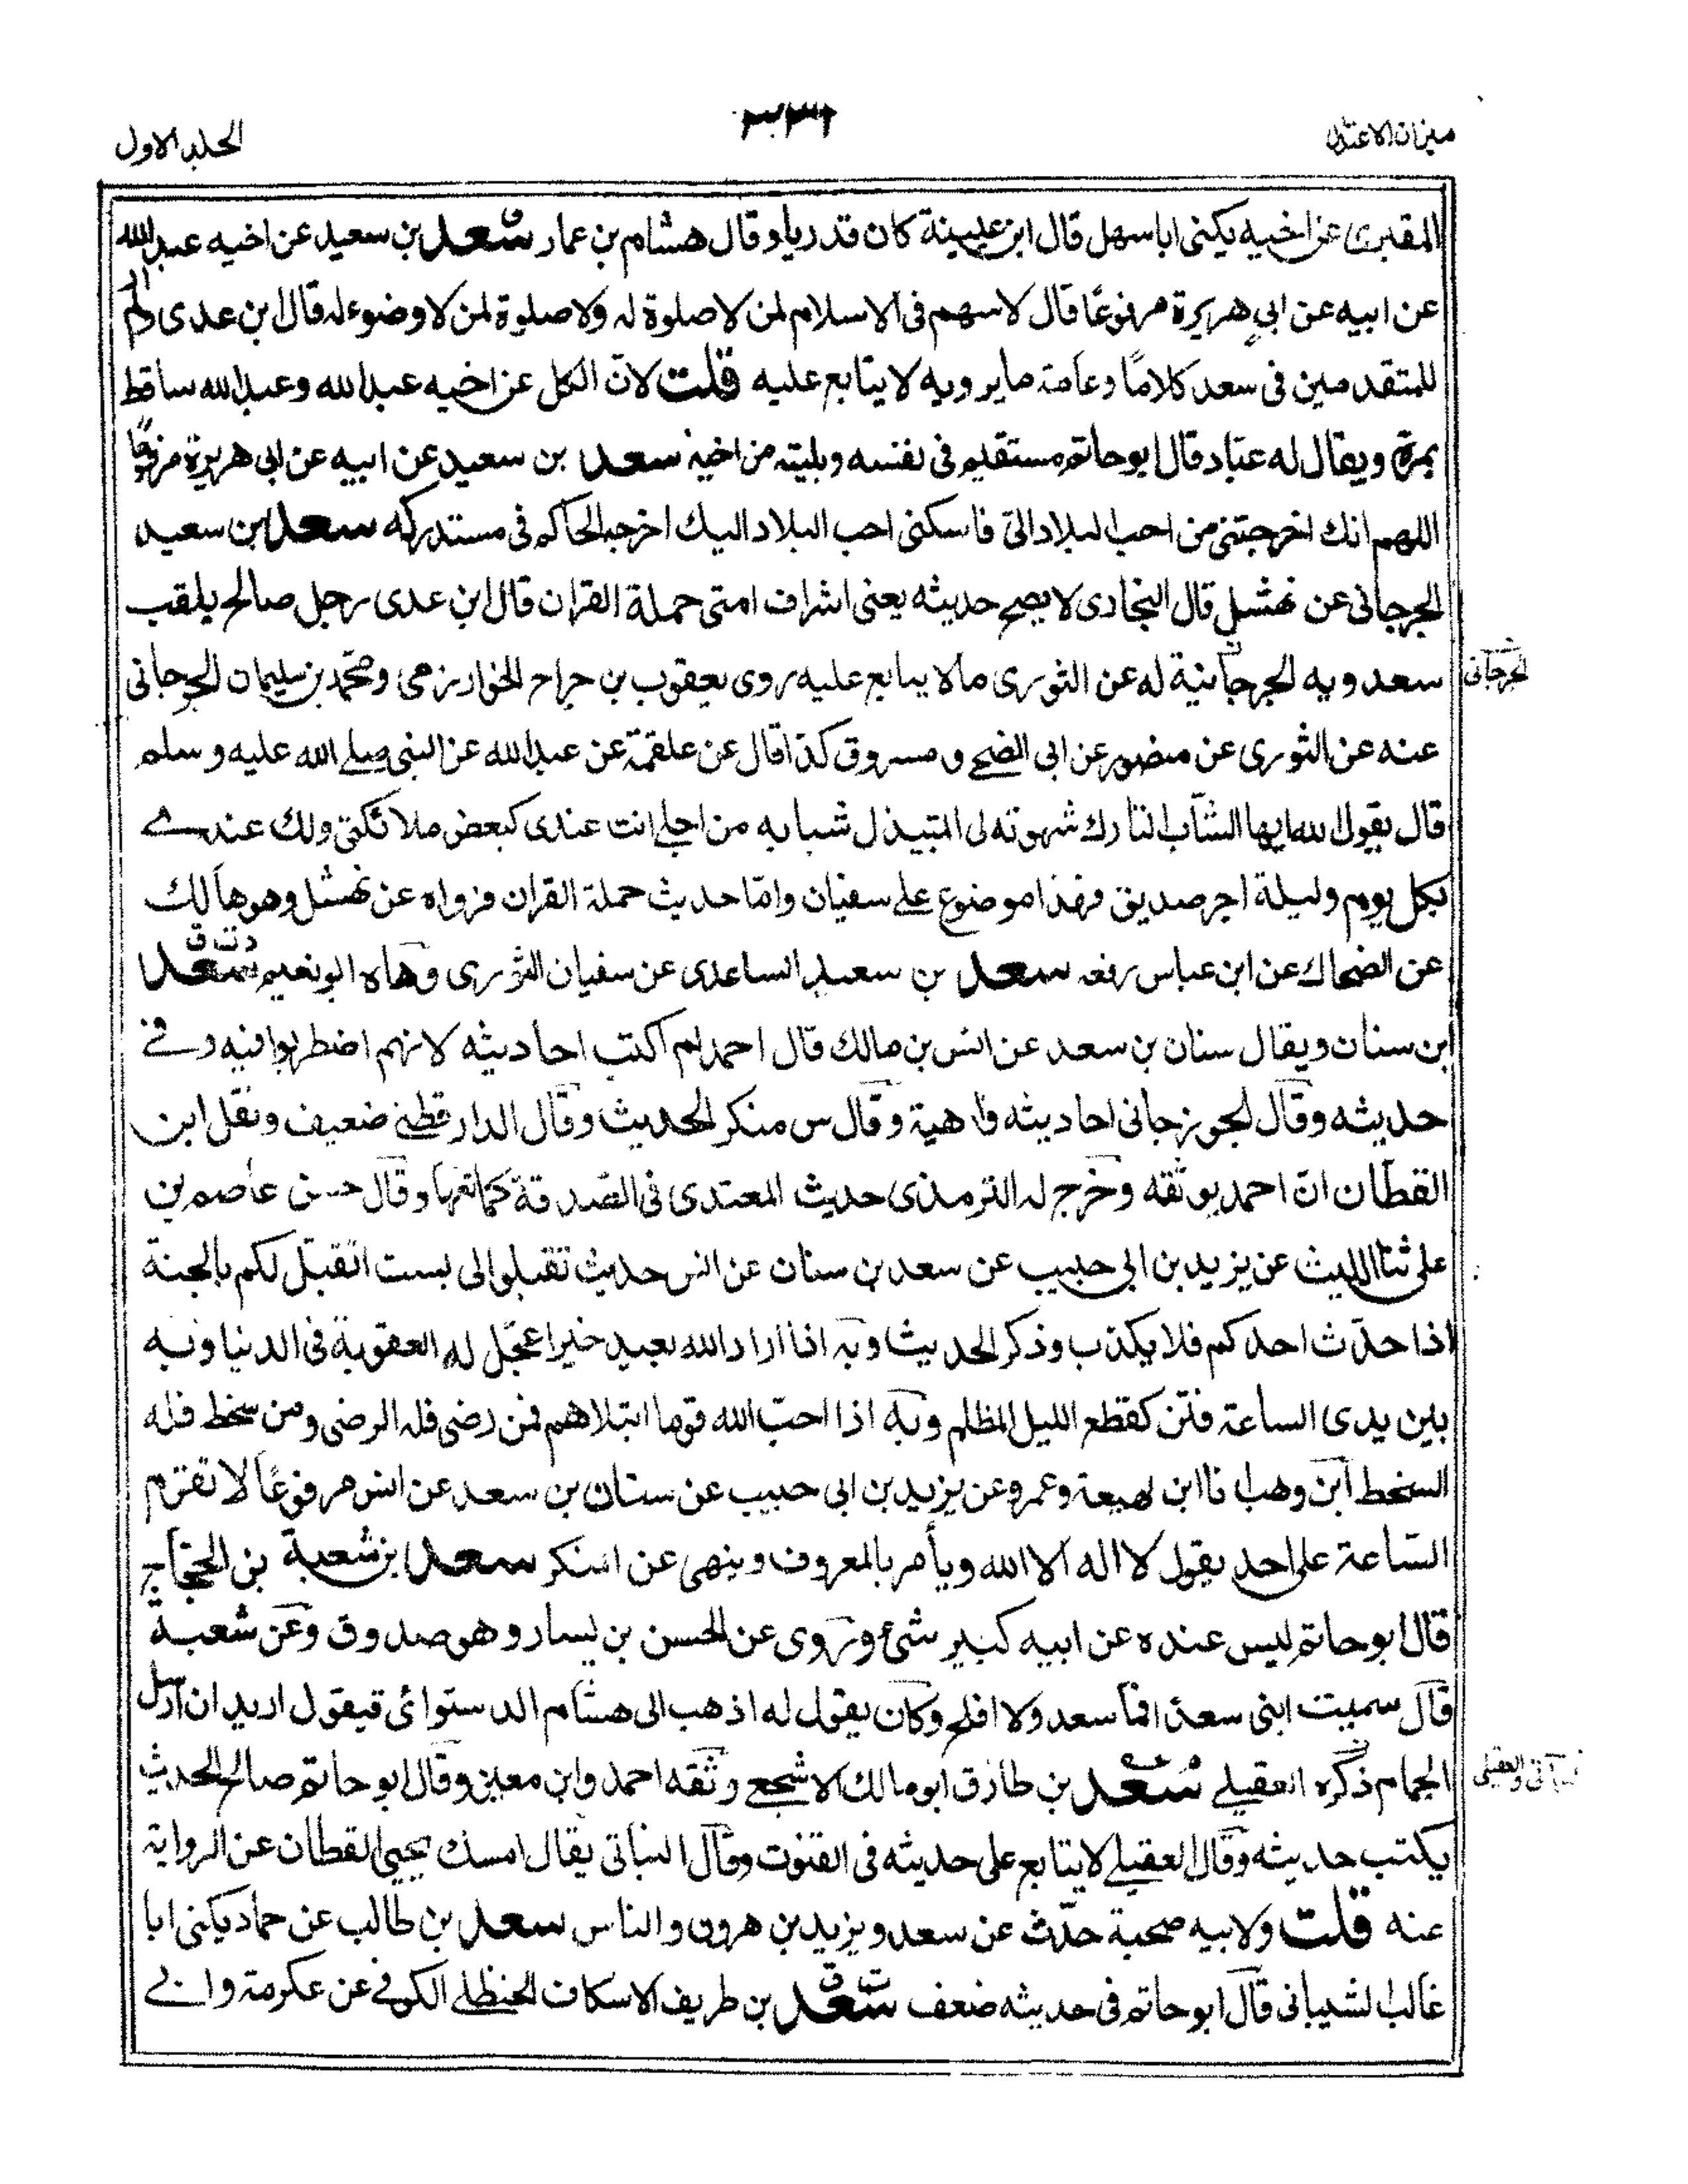 ميزان الاعتدال
٣٣١
الجلد الاول
المقبرى عن اخيه يكنى ابا سهل قال ابن عيينة كان قدريا وقال هشام بن عمار سعد بن سعيد عن اخيه عبد الله
عن ابيه عن ابي هريرة مرفوعًا قال لا سهم فى الاسلام لمن لا صلوة له ولا صلوة لمن لا وضوء له قال ابن عدى ولم ار
للمتقدمين فى سعد كلامًا وعامة ما يرويه لا يتابع عليه قلت لانّ الكل عن اخيه عبد الله وعبد الله ساقط
بمرة ويقال له عبّاد قال ابو حاتم مستقيم فى نفسه وبليته من اخيه سعد بن سعيد عن ابيه عن ابى هريرة مرفوعًا
اللهم انك اخرجتنى من احب البلاد الىّ فاسكنى احب البلاد اليك اخرجه الحاكم فى مستدركه سعد بن سعيد
الجرجانى عن نهشل قال البخارى لا يصح حديثه يعنى اشراف امتى حملة القران قال ابن عدى رجل صالح يلقب
سعدويه الجرجانية له عن الثورى ما لا يتابع عليه روى يعقوب بن جراح الخوارزمى ومحمد بن سليمان الجرجانى
الجرجانى
عنه عن الثورى عن منصور عن ابى الضحى ومسروق كذا قال عن علقمة عن عبد الله عن النبى صلے الله عليه وسلم
قال يقول الله ايها الشاب التارك شهوته لى المتبذل شبابه من اجلى انت عندى كبعض ملائكتى ولك عندے
بكل يوم وليلة اجر صديق فهذا موضوع علے سفيان وامّا حديث حملة القران فرواه عن نهشل وهو هالك
عن الضحاك عن ابن عباس رفعه سعد بن سعيد الساعدى عن سفيان الثورى وهاه ابو نعيم سعد د ت ق
ابن سنان ويقال سنان بن سعد عن انس بن مالك قال احمد لم اكتب احاديثه لانهم اضطربوا فيه وفے
حديثه وقال الجوزجانى احاديثه واهية وقال س منكر الحديث وقال الدارقطنے ضعيف ونقل ابن
القطان انّ احمد يوثقه وخرج له الترمذى حديث المعتدى فى الصدقة كمانعها وقال حسن عاصم بن
على ثنا الليث عن يزيد بن ابى حبيب عن سعد بن سنان عن انس حديث تقبلوا لى بست اتقبل لكم بالجنة
اذا حدّث احدكم فلا يكذب وذكر الحديث وبه اذا اراد الله بعبد خيرا عجّل له العقوبة فى الدنيا وبه
بين يدى الساعة فتن كقطع الليل المظلم وبه اذا احبّ الله قوما ابتلاهم فمن رضى فله الرضى ومن سخط فله
السخط ابن وهب نا ابن لهيعة وعمرو عن يزيد بن ابى حبيب عن سنان بن سعد عن انس مرفوعًا لا تقوم
السّاعة على احد يقول لا اله الا الله ويأمر بالمعروف وينهى عن المنكر سعد بن شعبة بن الحجّاج
قال ابو حاتم ليس عنده عن ابيه كبير شئ وروى عن الحسن بن يسار وهو صدوق وعن شعبة
قال سميت ابنى سعدا فما سعد ولا افلح وكان يقول له اذهب الى هشام الدستوائى فيقول اريد ان ارسل
الحمام ذكره العقيلے سعد بن طارق ابو مالك الاشجعى وثقه احمد وابن معين وقال ابو حاتم صالح الحديث
يكتب حديثه وقال العقيلے لا يتابع على حديثه فى القنوت وقال النباتى يقال امسك يحيى القطان عن الرواية
عنه قلت ولابيه صحبة حدّث عن سعد ويزيد بن هرون والناس سعد بن طالب عن حماد يكنى ابا
غالب الشيبانى قال ابو حاتم فى حديثه ضعف سعد ت ق بن طريف الاسكاف الحنظلے الكوفے عن عكرمة وابے